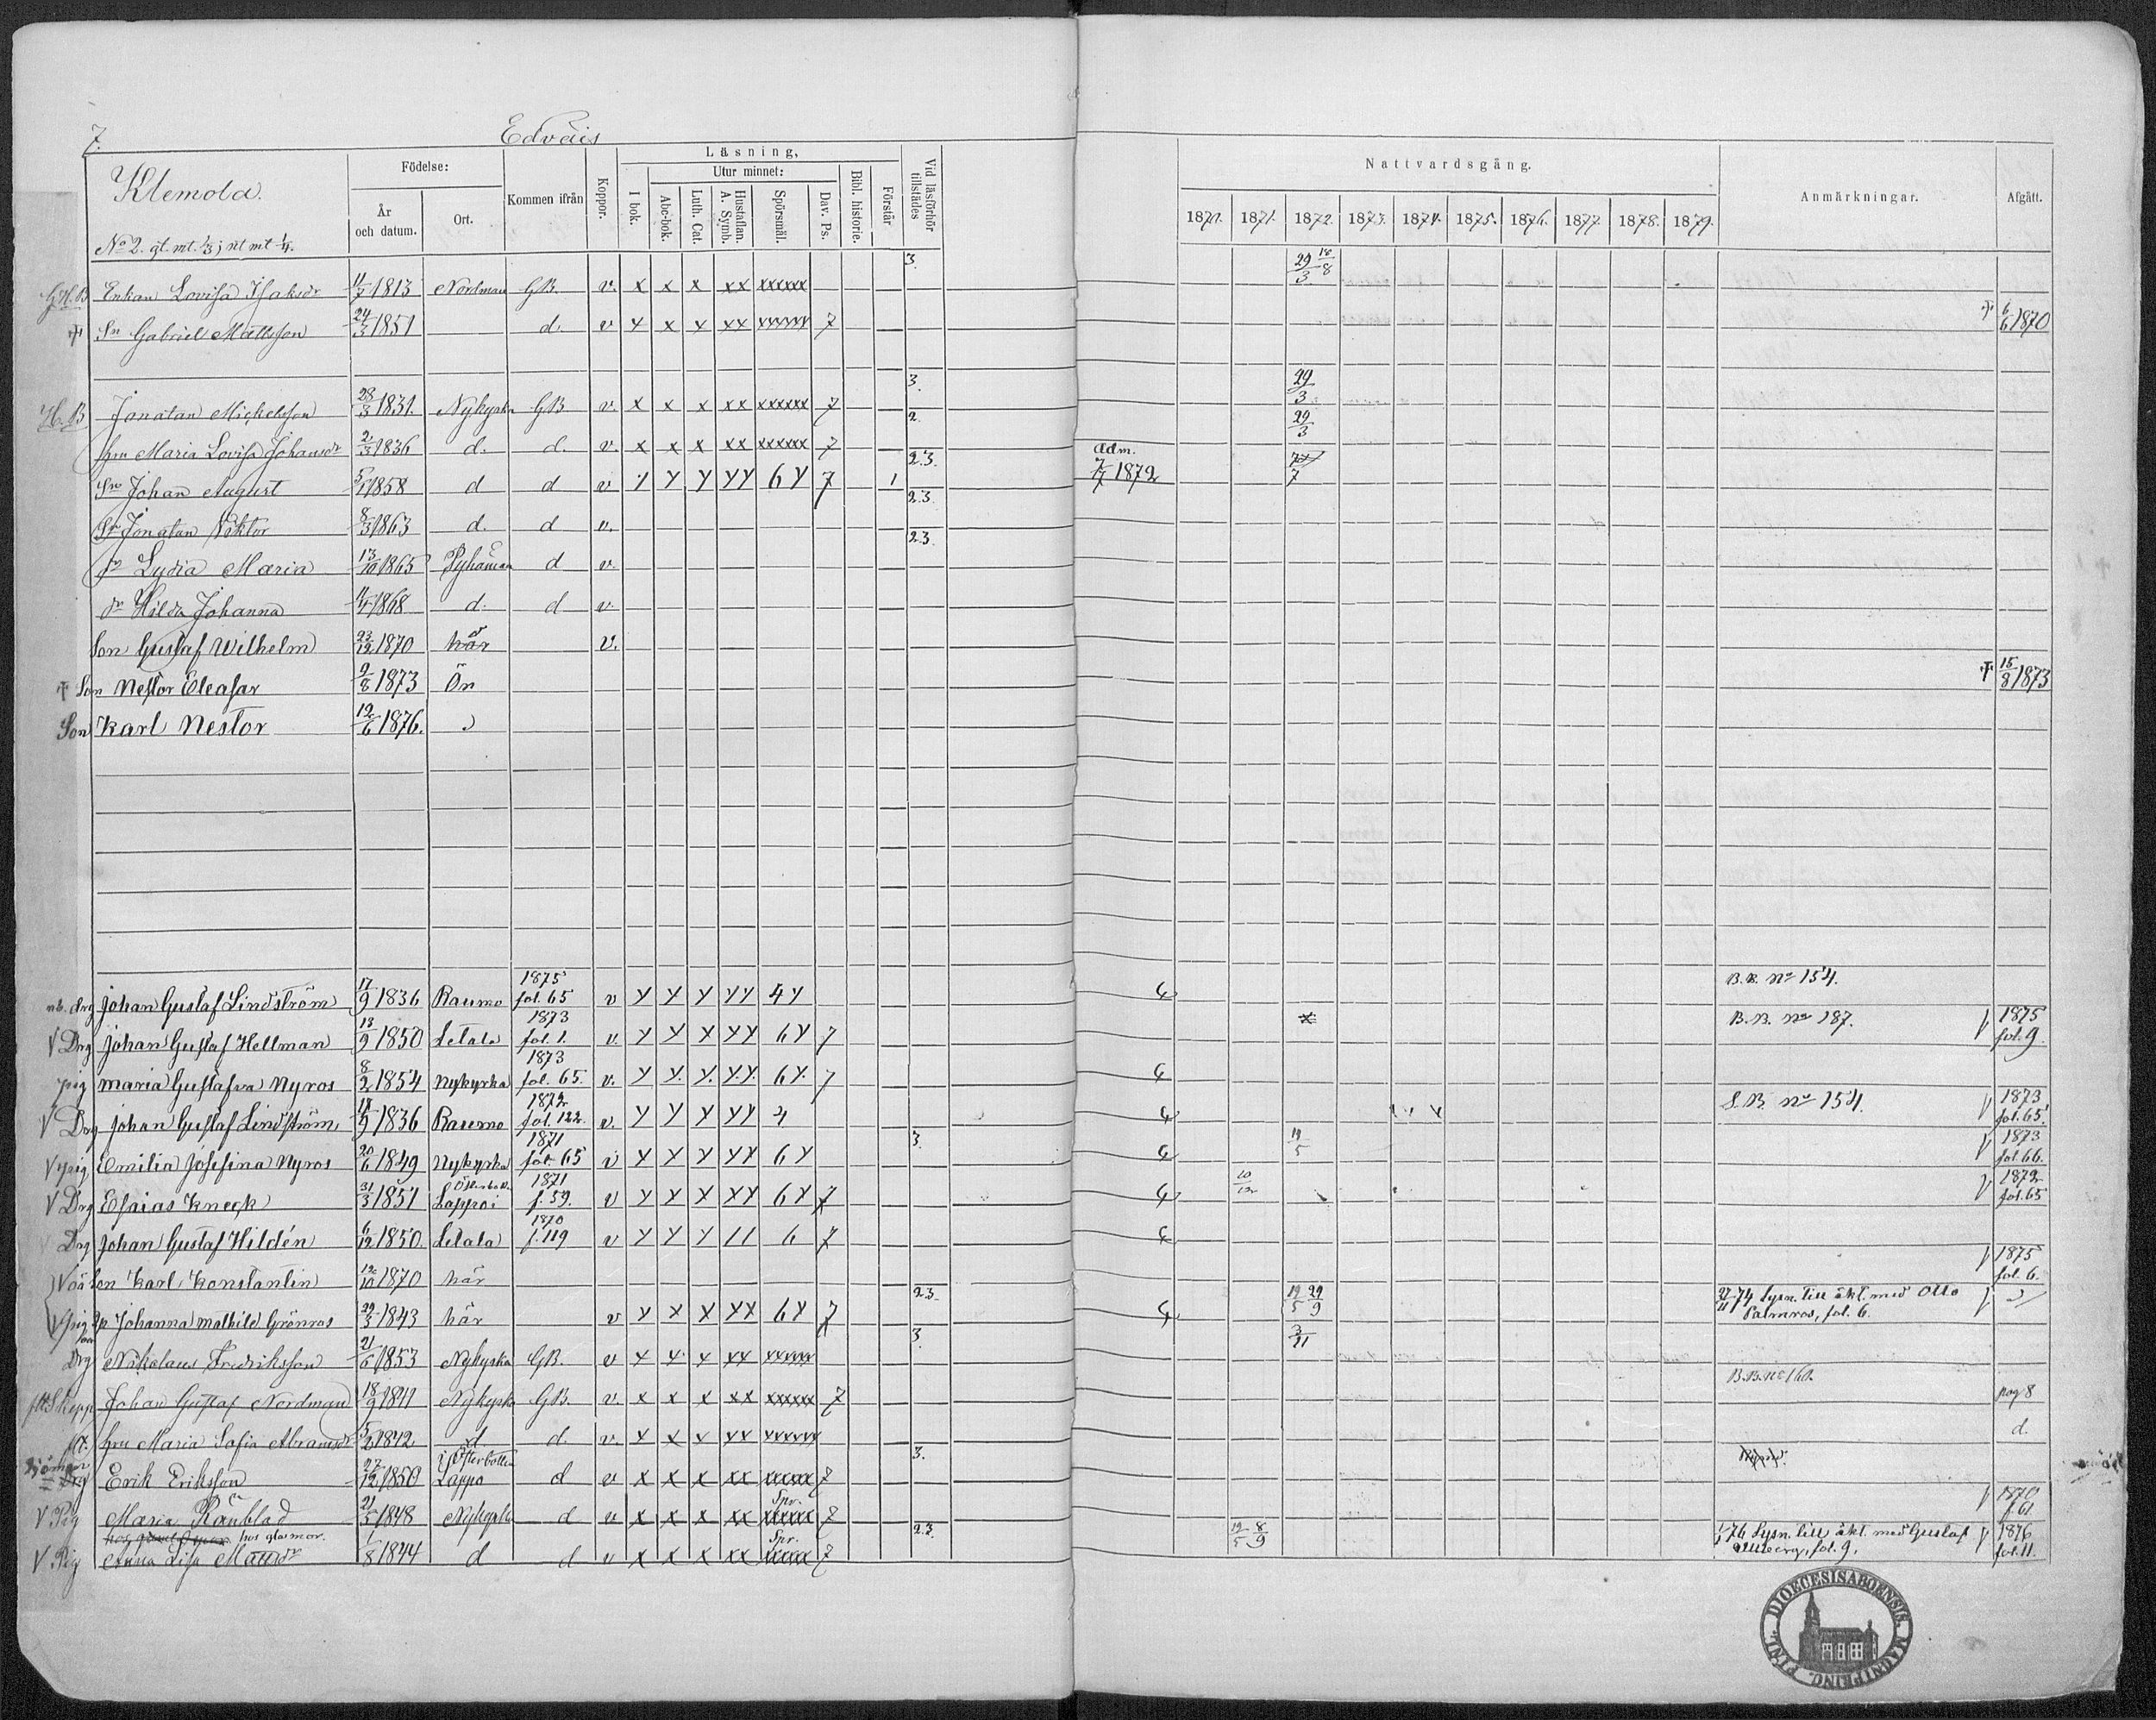 7. Edväis
Klemola.
No 2. gl. mt. 1/3; nt mt 1/4.
Födelse:
År och datum.
Ort.
Kommen ifrån
Koppor.
Läsning,
I bok.
Utur minnet:
Abc-bok.
Luth. Cat.
Hustaflan. A. Symb.
Spörsmål.
Dav. Ps.
Bibl. historie.
Förstår
Vid läsförhör tillstädes
Nattvardsgång.
1870. 1871. 1872. 1873. 1874. 1875. 1876. 1877. 1878. 1879.
Anmärkningar.
Afgått.
G.H.B Enkan Lovisa Isaksdr 11/7 1813 Nordman G.B. v. x x x xx xxxxxx 3. 29/3 18/8
† Sn Gabriel Mattsson 24/3 1851 d. v x x x xx xxxxxx 7 † 6/6 1870
H.B Jonatan Mickelsson 28/3 1831. Nykyrka GB v. x x x xx xxxxxx 7 3. 29/3
hru Maria Lovisa Johansdr 2/3 1836 d. d. v. x x x xx xxxxxx 7 2. 29/3
Sn Johan August 1858 d d v y y y yy 6y 7 1 2.3. Adm. 7/7 1872 7/7
Sn Jonatan Viktor 8/3 1863 d. d v. 2.3.
dr Lydia Maria 13/10 1865 Pyhämaa d v. 2.3.
dr Hilda Johanna 11/4 1868 d. d v.
Son Gustaf Wilhelm 23/12 1870 här v.
† Son Nestor Eleasar 9/8 1873 Ön † 15/8 1873
Son Karl Nestor 12/6 1876.
Drg Johan Gustaf Lindström 17/9 1836 Raumo 1875 fol. 65 v y y y yy 4y B.B. No 154.
V Drg Johan Gustaf Hellman 13/9 1850 Letala 1873 fol. 1. v. y y x yy 6y 7 B.B. No 187. V 1875 fol. 9.
pig Maria Gustafva Nyros 8/2 1854 Nykyrka 1873 fol. 65. v. y y. y. y.y. 6y. 7
V Drg Johan Gustaf Lindström 17/9 1836 Raumo 1872 fol. 122. v. y y y yy 4 S.B. No 154. V 1873 fol. 65.
V pig Emilia Josefina Nyros 20/6 1849 Nykyrka 1871 fol. 65 v y y y yy 6y 3. 19/5 V 1873 fol. 66.
V Drg Esaias Kneck 31/3 1851 Lappoi 1871 f. 59. v y y x yy 6y 7 10/12 V 1872 fol. 65
Drg Johan Gustaf Hildén 6/12 1850. Letala 1870 f. 119 v y y y 11 6 7
V oä Son Karl Konstantin 12/10 1870 här V 1875 fol. 6.
V pig Johanna Mathild Grönros 29/3 1843 här v y x x xx 6y 7 2.3. 19/5 29/9 27/11 74 Lysn. till äkt. med Otto Palmros, fol. 6. V
Drg Nikolaus Fredriksson 21/6 1853 Nykyrka G.B. v x x x xx xxxxx 3. 3/11
Skepp Johan Gustaf Nordman 18/9 1841 Nykyrka G.B. v. x x x xx xxxxxx 7 B.B. No 160. pag 8
hru Maria Sofia Abramsdr 5/2 1842 d d. v. x x x xx xxxxxx d.
Sjöman Drg Erik Eriksson 27/12 1850 i Österbotten Lappo d v x x x xx xxxxx 7 3.
V Pig Maria Ränblad 21/5 1848 Nykyrka d v x x x xx Spr. xxxxx 7 V 1870 f. 61
hos glasmor.
V Pig Anna Lisa Matsdr 1/8 1844 d d v x x x xx Spr. xxxxx 7 2.3. 19/5 8/9 76 Lysn. till äkt. med Gustaf fol. 9. V 1876 fol. 11.
DIOECESIS ABOENSIS. MAGNI PRINC. FINL.